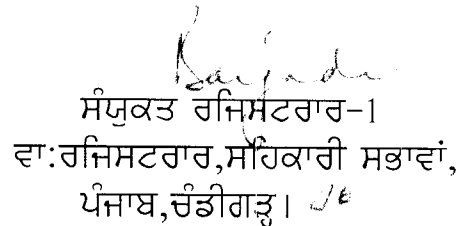 ਸੰਯੁਕਤ ਰਜਿਸਟਰਾਰ-1
ਵਾ:ਰਜਿਸਟਰਾਰ,ਸਹਿਕਾਰੀ ਸਭਾਵਾਂ,
ਪੰਜਾਬ,ਚੰਡੀਗੜ੍ਹ।